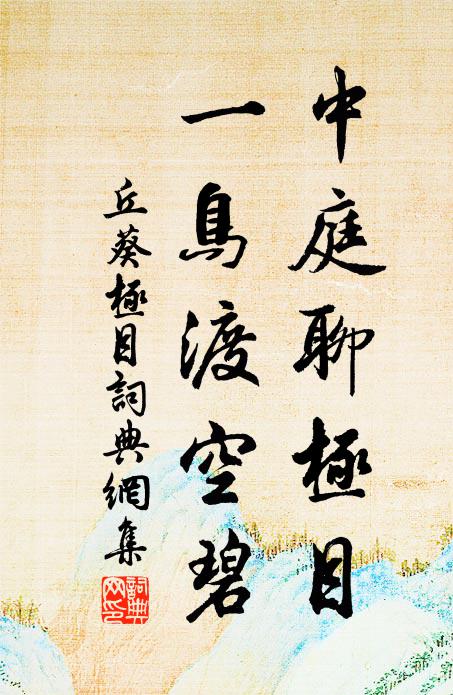 中庭聊極目
一鳥渡空碧
丘葵極目詞典網集
詞典
网印